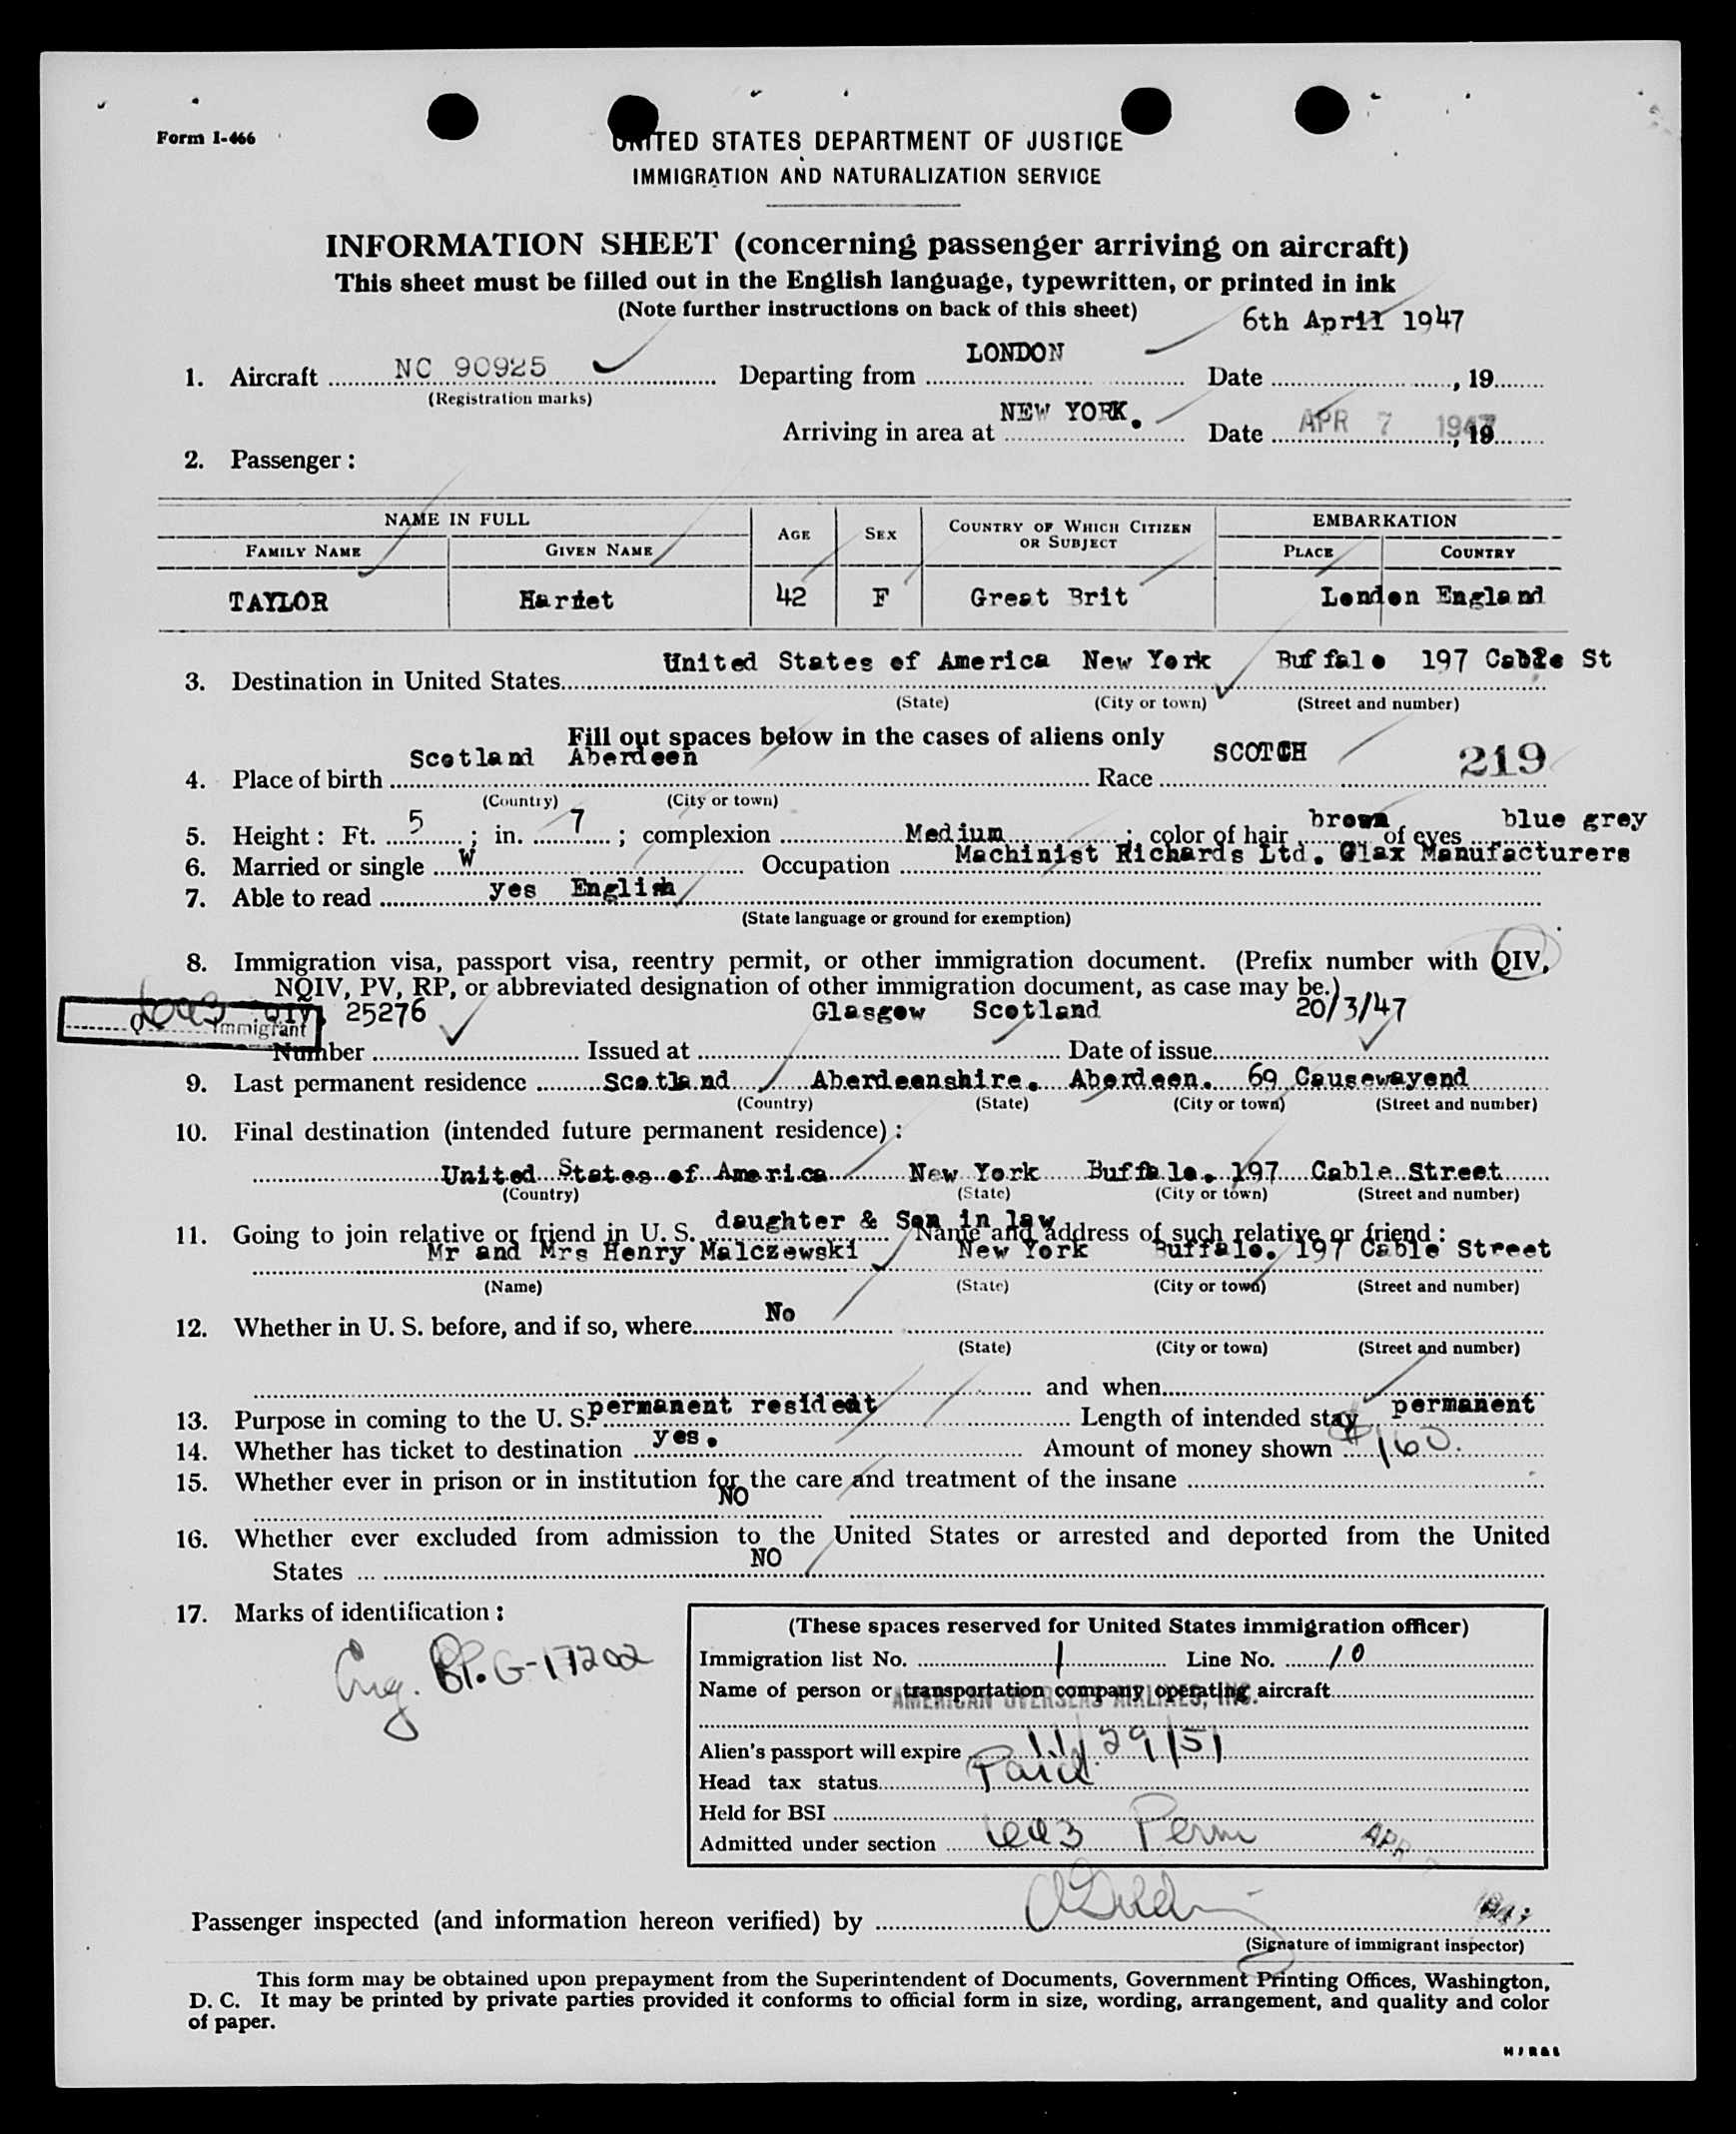 Form I-466
UNITED STATES DEPARTMENT OF JUSTICE
IMMIGRATION AND NATURALIZATION SERVICE
INFORMATION SHEET (concerning passenger arriving on aircraft)
This sheet must be filled out in the English language, typewritten, or printed in ink
(Note further instructions on back of this sheet)
6th April 1947
1. Aircraft NC 90925 Departing from LONDON Date , 19
(Registration marks)
Arriving in area at NEW YORK. Date APR 7 1947, 19
2. Passenger :
NAME IN FULL AGE SEX COUNTRY OF WHICH CITIZEN OR SUBJECT EMBARKATION
FAMILY NAME GIVEN NAME PLACE COUNTRY
TAYLOR Harriet 42 F Great Brit London England
3. Destination in United States United States of America New York Buffalo 197 Cable St
(State) (City or town) (Street and number)
Fill out spaces below in the cases of aliens only
4. Place of birth Scotland Aberdeen Race SCOTCH 219
(Country) (City or town)
5. Height : Ft. 5 ; in. 7 ; complexion Medium ; color of hair brown of eyes blue grey
6. Married or single W Occupation Machinist Richards Ltd. Glax Manufacturers
7. Able to read yes English
(State language or ground for exemption)
8. Immigration visa, passport visa, reentry permit, or other immigration document. (Prefix number with QIV,
NQIV, PV, RP, or abbreviated designation of other immigration document, as case may be.)
Q Immigrant
Number QIV 25276 Issued at Glasgow Scotland Date of issue 20/3/47
9. Last permanent residence Scotland Aberdeenshire. Aberdeen. 69 Causewayend
(Country) (State) (City or town) (Street and number)
10. Final destination (intended future permanent residence) :
United States of America New York Buffalo. 197 Cable Street
(Country) (State) (City or town) (Street and number)
11. Going to join relative or friend in U. S. daughter & Son in law Name and address of such relative or friend :
Mr and Mrs Henry Malczewski New York Buffalo. 197 Cable Street
(Name) (State) (City or town) (Street and number)
12. Whether in U. S. before, and if so, where No
(State) (City or town) (Street and number)
and when
13. Purpose in coming to the U. S. permanent resident Length of intended stay permanent
14. Whether has ticket to destination yes. Amount of money shown $160.
15. Whether ever in prison or in institution for the care and treatment of the insane
NO
16. Whether ever excluded from admission to the United States or arrested and deported from the United
States NO
17. Marks of identification :
Eng. PP. G-17202
(These spaces reserved for United States immigration officer)
Immigration list No. 1 Line No. 10
Name of person or transportation company operating aircraft
AMERICAN OVERSEAS AIRLINES, INC.
Alien's passport will expire 11/29/51
Head tax status Paid
Held for BSI
Admitted under section 6a3 Perm APR 7 1947
Passenger inspected (and information hereon verified) by
(Signature of immigrant inspector)
This form may be obtained upon prepayment from the Superintendent of Documents, Government Printing Offices, Washington,
D. C. It may be printed by private parties provided it conforms to official form in size, wording, arrangement, and quality and color
of paper.